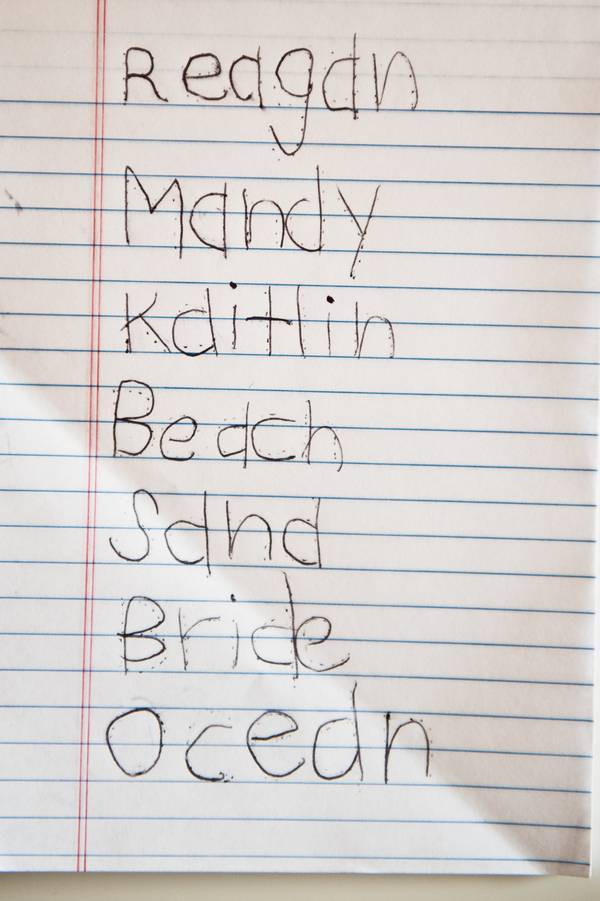 Reagan
Mandy
Kaitlin
Beach
Sand
Bride
Ocean